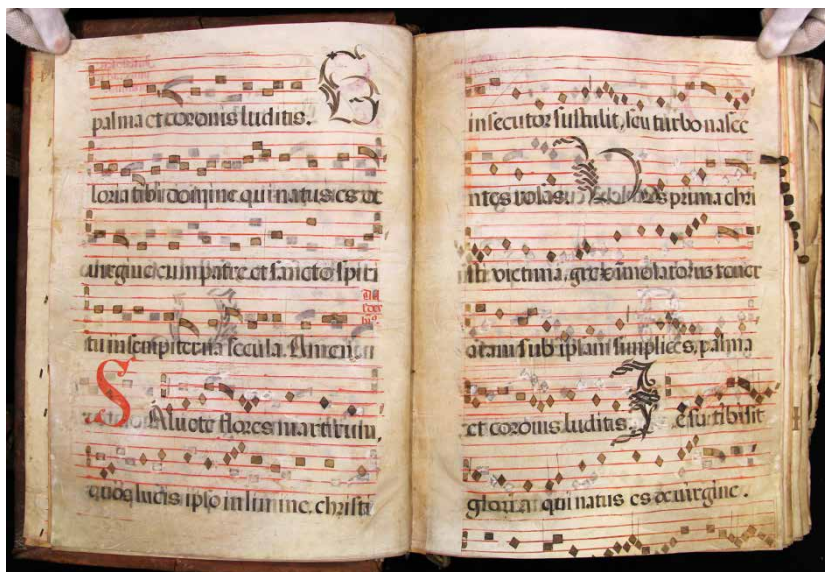 palma et coronis luditis. G
loria tibi domine qui natus es de
uirgine cum patre et sancto spiri
tu in sempiterna secula. Amen
Saluete flores martirum,
quoq lucis ipso in limine, christi
insecutor sustulit, ceu turbo nasce
ntes rosas. Uos prima chri
sti victima, grex imolatorus tener
aram sub ipsam simplices, palma
et coronis luditis. Iesu tibi sit
gloria qui natus es de uirgine.